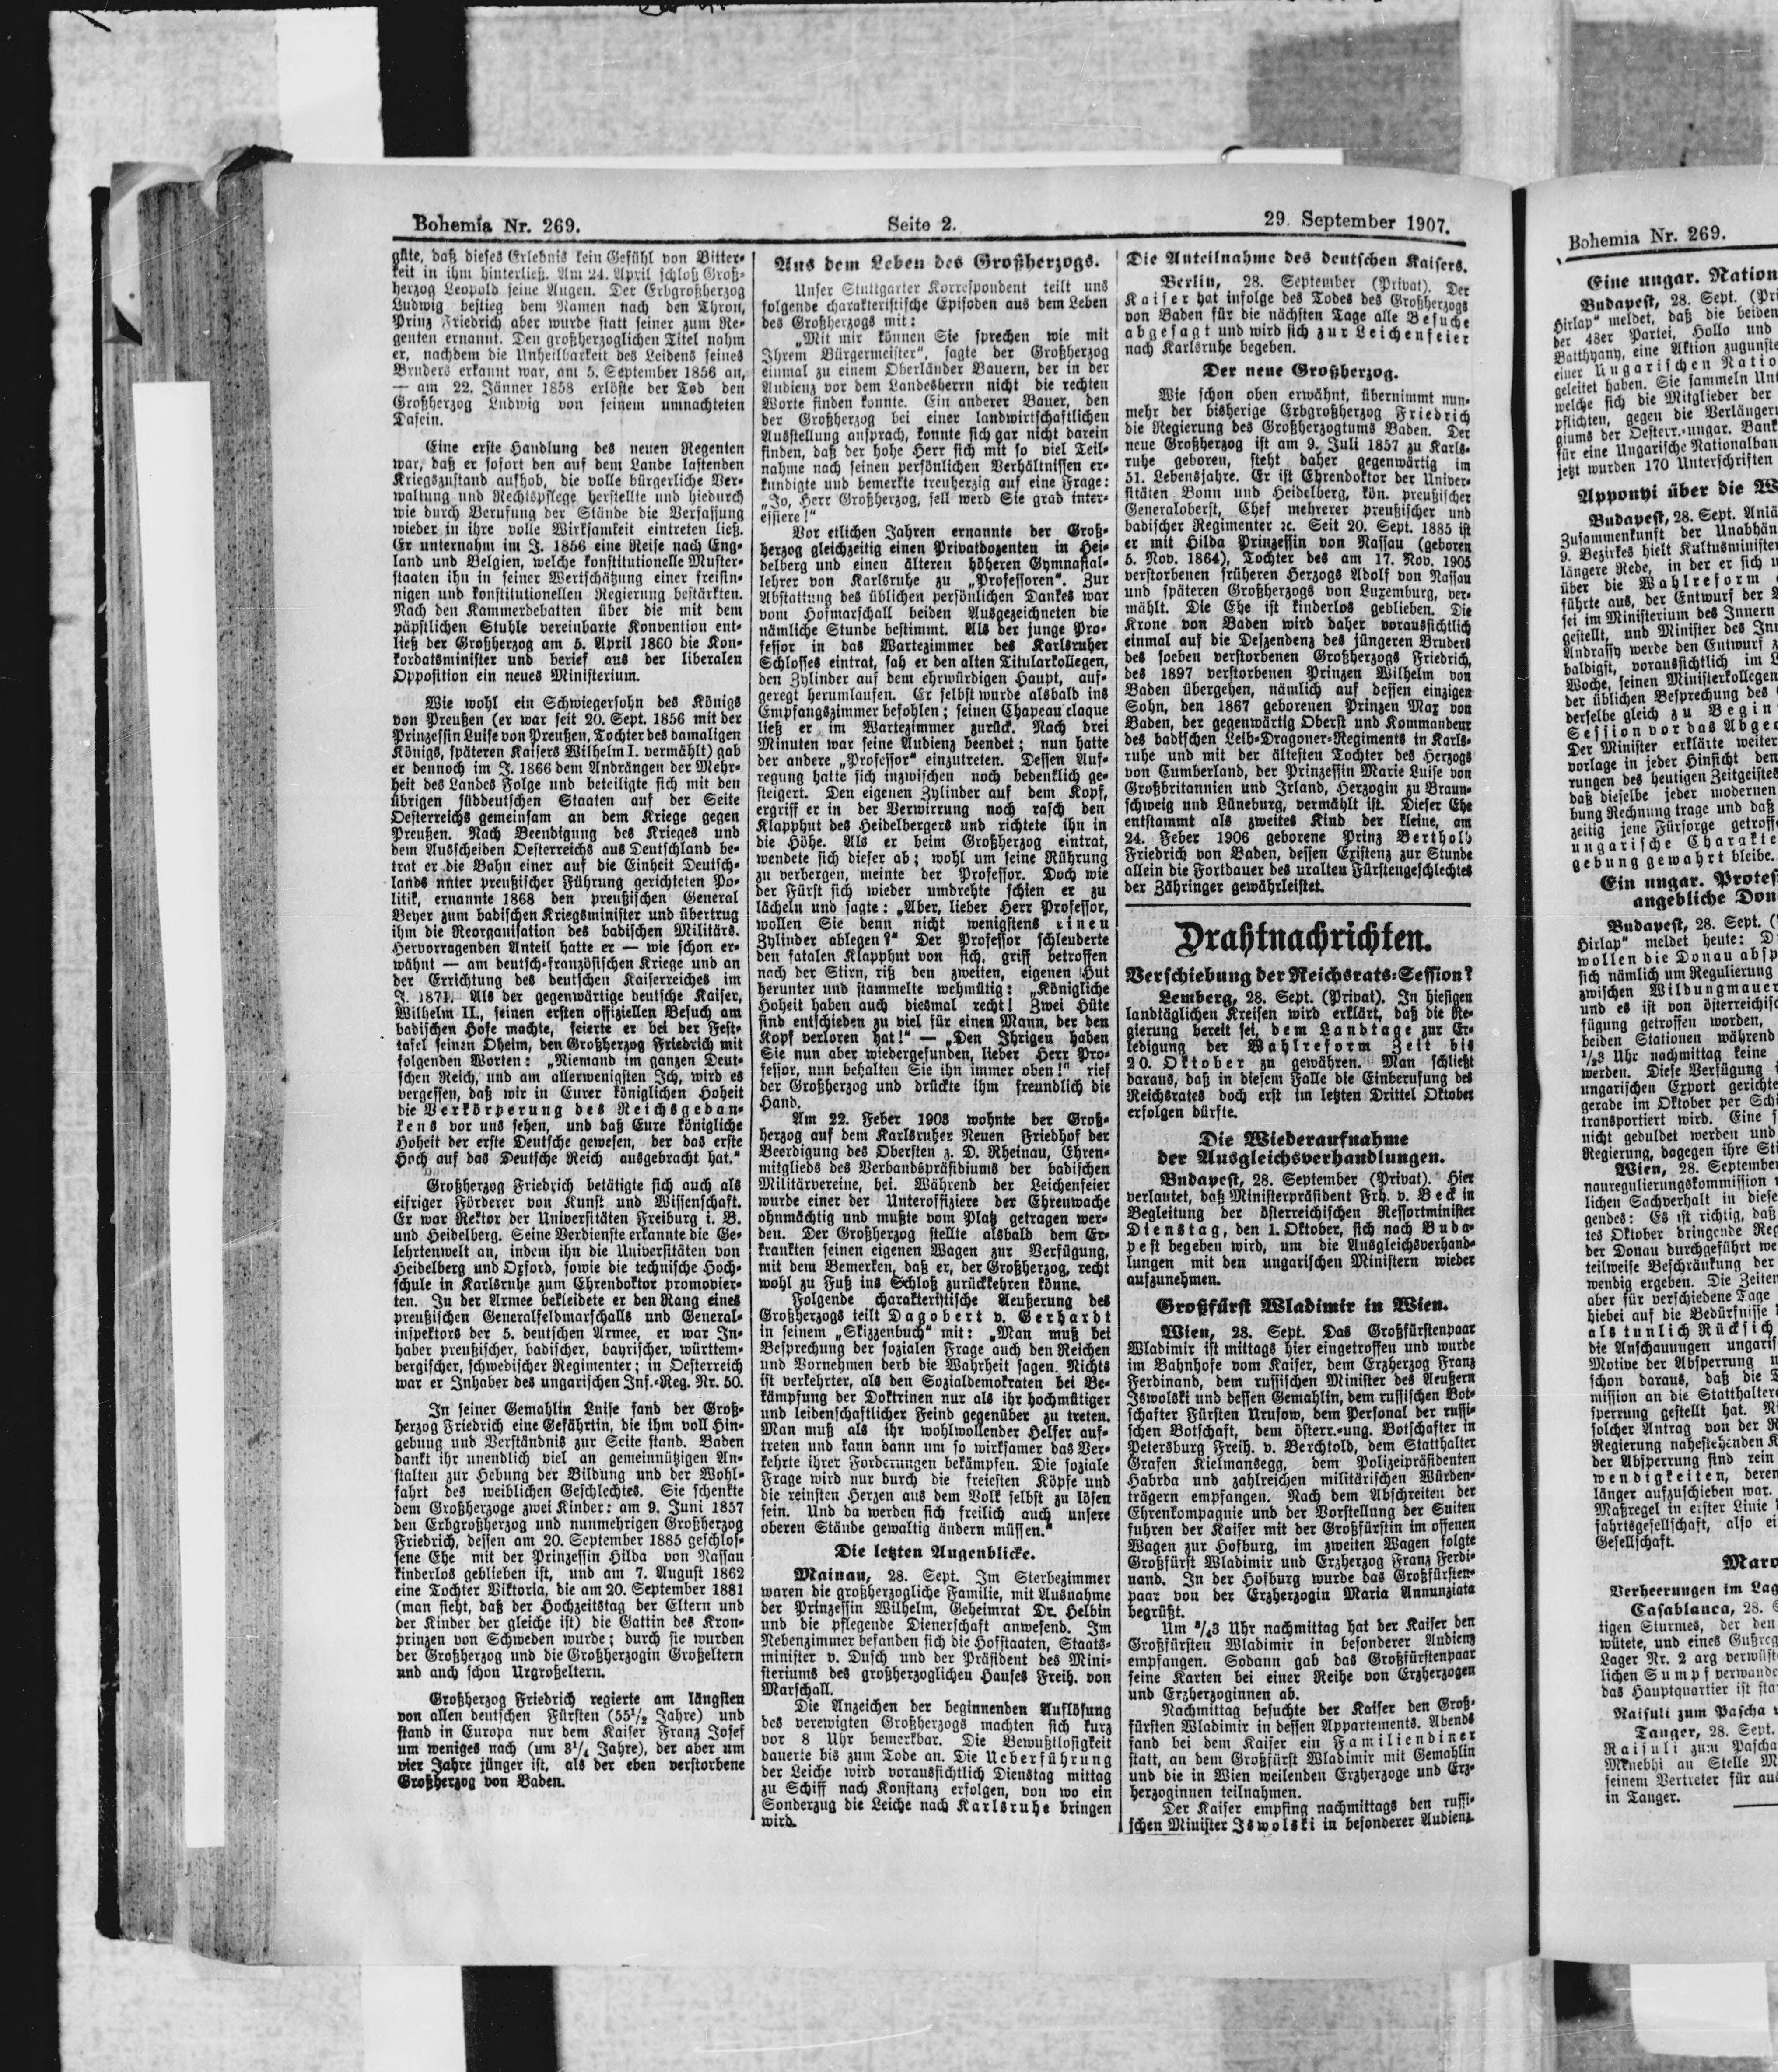 Bohemia Nr. 269.
Seite 2.
29. September 1907.
güte, daß dieses Erlebnis kein Gefühl von Bitter-
keit in ihm hinterließ. Am 24. April schloß Groß-
herzog Leopold seine Augen. Der Erbgroßherzog
Ludwig bestieg dem Namen nach den Thron,
Prinz Friedrich aber wurde statt seiner zum Re-
genten ernannt. Den großherzoglichen Titel nahm
er, nachdem die Unheilbarkeit des Leidens seines
Bruders erkannt war, am 5. September 1856 an,
— am 22. Jänner 1858 erlöste der Tod den
Großherzog Ludwig von seinem umnachteten
Dasein.
Eine erste Handlung des neuen Regenten
war, daß er sofort den auf dem Lande lastenden
Kriegszustand aufhob, die volle bürgerliche Ver-
waltung und Rechtspflege herstellte und hiedurch
wie durch Berufung der Stände die Verfassung
wieder in ihre volle Wirksamkeit eintreten ließ.
Er unternahm im J. 1856 eine Reise nach Eng-
land und Belgien, welche konstitutionelle Muster-
staaten ihn in seiner Wertschätzung einer freisin-
nigen und konstitutionellen Regierung bestärkten.
Nach den Kammerdebatten über die mit dem
päpstlichen Stuhle vereinbarte Konvention ent-
ließ der Großherzog am 5. April 1860 die Kon-
kordatsminister und berief aus der liberalen
Opposition ein neues Ministerium.
Wie wohl ein Schwiegersohn des Königs
von Preußen (er war seit 20. Sept. 1856 mit der
Prinzessin Luise von Preußen, Tochter des damaligen
Königs, späteren Kaisers Wilhelm I. vermählt) gab
er dennoch im J. 1866 dem Andrängen der Mehr-
heit des Landes Folge und beteiligte sich mit den
übrigen süddeutschen Staaten auf der Seite
Oesterreichs gemeinsam an dem Kriege gegen
Preußen. Nach Beendigung des Krieges und
dem Ausscheiden Oesterreichs aus Deutschland be-
trat er die Bahn einer auf die Einheit Deutsch-
lands unter preußischer Führung gerichteten Po-
litik, ernannte 1868 den preußischen General
Beyer zum badischen Kriegsminister und übertrug
ihm die Reorganisation des badischen Militärs.
Hervorragenden Anteil hatte er — wie schon er-
wähnt — am deutsch-französischen Kriege und an
der Errichtung des deutschen Kaiserreiches im
J. 1871. Als der gegenwärtige deutsche Kaiser,
Wilhelm II., seinen ersten offiziellen Besuch am
badischen Hofe machte, feierte er bei der Fest-
tafel seinen Oheim, den Großherzog Friedrich mit
folgenden Worten: „Niemand im ganzen Deut-
schen Reich, und am allerwenigsten Ich, wird es
vergessen, daß wir in Eurer königlichen Hoheit
die Verkörperung des Reichsgedan-
kens vor uns sehen, und daß Eure königliche
Hoheit der erste Deutsche gewesen, der das erste
Hoch auf das Deutsche Reich ausgebracht hat.“
Großherzog Friedrich betätigte sich auch als
eifriger Förderer von Kunst und Wissenschaft.
Er war Rektor der Universitäten Freiburg i. B.
und Heidelberg. Seine Verdienste erkannte die Ge-
lehrtenwelt an, indem ihn die Universitäten von
Heidelberg und Oxford, sowie die technische Hoch-
schule in Karlsruhe zum Ehrendoktor promovier-
ten. In der Armee bekleidete er den Rang eines
preußischen Generalfeldmarschalls und General-
inspektors der 5. deutschen Armee, er war In-
haber preußischer, badischer, bayrischer, württem-
bergischer, schwedischer Regimenter; in Oesterreich
war er Inhaber des ungarischen Inf.-Reg. Nr. 50.
In seiner Gemahlin Luise fand der Groß-
herzog Friedrich eine Gefährtin, die ihm voll Hin-
gebung und Verständnis zur Seite stand. Baden
dankt ihr unendlich viel an gemeinnützigen An-
stalten zur Hebung der Bildung und der Wohl-
fahrt des weiblichen Geschlechtes. Sie schenkte
dem Großherzoge zwei Kinder: am 9. Juni 1857
den Erbgroßherzog und nunmehrigen Großherzog
Friedrich, dessen am 20. September 1885 geschlos-
sene Ehe mit der Prinzessin Hilda von Nassau
kinderlos geblieben ist, und am 7. August 1862
eine Tochter Viktoria, die am 20. September 1881
(man sieht, daß der Hochzeitstag der Eltern und
der Kinder der gleiche ist) die Gattin des Kron-
prinzen von Schweden wurde; durch sie wurden
der Großherzog und die Großherzogin Großeltern
und auch schon Urgroßeltern.
Großherzog Friedrich regierte am längsten
von allen deutschen Fürsten (55½ Jahre) und
stand in Europa nur dem Kaiser Franz Josef
um weniges nach (um 3¼ Jahre), der aber um
vier Jahre jünger ist, als der eben verstorbene
Großherzog von Baden.
Aus dem Leben des Großherzogs.
Unser Stuttgarter Korrespondent teilt uns
folgende charakteristische Episoden aus dem Leben
des Großherzogs mit:
„Mit mir können Sie sprechen wie mit
Ihrem Bürgermeister“, sagte der Großherzog
einmal zu einem Oberländer Bauern, der in der
Audienz vor dem Landesherrn nicht die rechten
Worte finden konnte. Ein anderer Bauer, den
der Großherzog bei einer landwirtschaftlichen
Ausstellung ansprach, konnte sich gar nicht darein
finden, daß der hohe Herr sich mit so viel Teil-
nahme nach seinen persönlichen Verhältnissen er-
kundigte und bemerkte treuherzig auf eine Frage:
„Jo, Herr Großherzog, sell werd Sie grad inter-
essiere!“
Vor etlichen Jahren ernannte der Groß-
herzog gleichzeitig einen Privatdozenten in Hei-
delberg und einen älteren höheren Gymnasial-
lehrer von Karlsruhe zu „Professoren“. Zur
Abstattung des üblichen persönlichen Dankes war
vom Hofmarschall beiden Ausgezeichneten die
nämliche Stunde bestimmt. Als der junge Pro-
fessor in das Wartezimmer des Karlsruher
Schlosses eintrat, sah er den alten Titularkollegen,
den Zylinder auf dem ehrwürdigen Haupt, auf-
geregt herumlaufen. Er selbst wurde alsbald ins
Empfangszimmer befohlen; seinen Chapeau claque
ließ er im Wartezimmer zurück. Nach drei
Minuten war seine Audienz beendet; nun hatte
der andere „Professor“ einzutreten. Dessen Auf-
regung hatte sich inzwischen noch bedenklich ge-
steigert. Den eigenen Zylinder auf dem Kopf,
ergriff er in der Verwirrung noch rasch den
Klapphut des Heidelbergers und richtete ihn in
die Höhe. Als er beim Großherzog eintrat,
wendete sich dieser ab; wohl um seine Rührung
zu verbergen, meinte der Professor. Doch wie
der Fürst sich wieder umdrehte schien er zu
lächeln und sagte: „Aber, lieber Herr Professor,
wollen Sie denn nicht wenigstens einen
Zylinder ablegen?“ Der Professor schleuderte
den fatalen Klapphut von sich, griff betroffen
nach der Stirn, riß den zweiten, eigenen Hut
herunter und stammelte wehmütig: „Königliche
Hoheit haben auch diesmal recht! Zwei Hüte
sind entschieden zu viel für einen Mann, der den
Kopf verloren hat!“ — „Den Ihrigen haben
Sie nun aber wiedergefunden, lieber Herr Pro-
fessor, nun behalten Sie ihn immer oben!“ rief
der Großherzog und drückte ihm freundlich die
Hand.
Am 22. Feber 1903 wohnte der Groß-
herzog auf dem Karlsruher Neuen Friedhof der
Beerdigung des Obersten z. D. Rheinau, Ehren-
mitglieds des Verbandspräsidiums der badischen
Militärvereine, bei. Während der Leichenfeier
wurde einer der Unteroffiziere der Ehrenwache
ohnmächtig und mußte vom Platz getragen wer-
den. Der Großherzog stellte alsbald dem Er-
krankten seinen eigenen Wagen zur Verfügung,
mit dem Bemerken, daß er, der Großherzog, recht
wohl zu Fuß ins Schloß zurückkehren könne.
Folgende charakteristische Aeußerung des
Großherzogs teilt Dagobert v. Gerhardt
in seinem „Skizzenbuch“ mit: „Man muß bei
Besprechung der sozialen Frage auch den Reichen
und Vornehmen derb die Wahrheit sagen. Nichts
ist verkehrter, als den Sozialdemokraten bei Be-
kämpfung der Doktrinen nur als ihr hochmütiger
und leidenschaftlicher Feind gegenüber zu treten.
Man muß als ihr wohlwollender Helfer auf-
treten und kann dann um so wirksamer das Ver-
kehrte ihrer Forderungen bekämpfen. Die soziale
Frage wird nur durch die freiesten Köpfe und
die reinsten Herzen aus dem Volk selbst zu lösen
sein. Und da werden sich freilich auch unsere
oberen Stände gewaltig ändern müssen.“
Die letzten Augenblicke.
Mainau, 28. Sept. Im Sterbezimmer
waren die großherzogliche Familie, mit Ausnahme
der Prinzessin Wilhelm, Geheimrat Dr. Helbin
und die pflegende Dienerschaft anwesend. Im
Nebenzimmer befanden sich die Hofstaaten, Staats-
minister v. Dusch und der Präsident des Mini-
steriums des großherzoglichen Hauses Freih. von
Marschall.
Die Anzeichen der beginnenden Auflösung
des verewigten Großherzogs machten sich kurz
vor 8 Uhr bemerkbar. Die Bewußtlosigkeit
dauerte bis zum Tode an. Die Ueberführung
der Leiche wird voraussichtlich Dienstag mittag
zu Schiff nach Konstanz erfolgen, von wo ein
Sonderzug die Leiche nach Karlsruhe bringen
wird.
Die Anteilnahme des deutschen Kaisers.
Berlin, 28. September (Privat). Der
Kaiser hat infolge des Todes des Großherzogs
von Baden für die nächsten Tage alle Besuche
abgesagt und wird sich zur Leichenfeier
nach Karlsruhe begeben.
Der neue Großherzog.
Wie schon oben erwähnt, übernimmt nun-
mehr der bisherige Erbgroßherzog Friedrich
die Regierung des Großherzogtums Baden. Der
neue Großherzog ist am 9. Juli 1857 zu Karls-
ruhe geboren, steht daher gegenwärtig im
51. Lebensjahre. Er ist Ehrendoktor der Univer-
sitäten Bonn und Heidelberg, kön. preußischer
Generaloberst, Chef mehrerer preußischer und
badischer Regimenter ꝛc. Seit 20. Sept. 1885 ist
er mit Hilda Prinzessin von Nassau (geboren
5. Nov. 1864), Tochter des am 17. Nov. 1905
verstorbenen früheren Herzogs Adolf von Nassau
und späteren Großherzogs von Luxemburg, ver-
mählt. Die Ehe ist kinderlos geblieben. Die
Krone von Baden wird daher voraussichtlich
einmal auf die Deszendenz des jüngeren Bruders
des soeben verstorbenen Großherzogs Friedrich,
des 1897 verstorbenen Prinzen Wilhelm von
Baden übergehen, nämlich auf dessen einzigen
Sohn, den 1867 geborenen Prinzen Max von
Baden, der gegenwärtig Oberst und Kommandeur
des badischen Leib-Dragoner-Regiments in Karls-
ruhe und mit der ältesten Tochter des Herzogs
von Cumberland, der Prinzessin Marie Luise von
Großbritannien und Irland, Herzogin zu Braun-
schweig und Lüneburg, vermählt ist. Dieser Ehe
entstammt als zweites Kind der kleine, am
24. Feber 1906 geborene Prinz Berthold
Friedrich von Baden, dessen Existenz zur Stunde
allein die Fortdauer des uralten Fürstengeschlechtes
der Zähringer gewährleistet.
Drahtnachrichten.
Verschiebung der Reichsrats-Session?
Lemberg, 28. Sept. (Privat). In hiesigen
landtäglichen Kreisen wird erklärt, daß die Re-
gierung bereit sei, dem Landtage zur Er-
ledigung der Wahlreform Zeit bis
20. Oktober zu gewähren. Man schließt
daraus, daß in diesem Falle die Einberufung des
Reichsrates doch erst im letzten Drittel Oktober
erfolgen dürfte.
Die Wiederaufnahme
der Ausgleichsverhandlungen.
Budapest, 28. September (Privat). Hier
verlautet, daß Ministerpräsident Frh. v. Beck in
Begleitung der österreichischen Ressortminister
Dienstag, den 1. Oktober, sich nach Buda-
pest begeben wird, um die Ausgleichsverhand-
lungen mit den ungarischen Ministern wieder
aufzunehmen.
Großfürst Wladimir in Wien.
Wien, 28. Sept. Das Großfürstenpaar
Wladimir ist mittags hier eingetroffen und wurde
im Bahnhofe vom Kaiser, dem Erzherzog Franz
Ferdinand, dem russischen Minister des Aeußern
Iswolski und dessen Gemahlin, dem russischen Bot-
schafter Fürsten Urusow, dem Personal der russi-
schen Botschaft, dem österr.-ung. Botschafter in
Petersburg Freih. v. Berchtold, dem Statthalter
Grafen Kielmansegg, dem Polizeipräsidenten
Habrda und zahlreichen militärischen Würden-
trägern empfangen. Nach dem Abschreiten der
Ehrenkompagnie und der Vorstellung der Suiten
fuhren der Kaiser mit der Großfürstin im offenen
Wagen zur Hofburg, im zweiten Wagen folgte
Großfürst Wladimir und Erzherzog Franz Ferdi-
nand. In der Hofburg wurde das Großfürsten-
paar von der Erzherzogin Maria Annunziata
begrüßt.
Um ¾3 Uhr nachmittag hat der Kaiser den
Großfürsten Wladimir in besonderer Audienz
empfangen. Sodann gab das Großfürstenpaar
seine Karten bei einer Reihe von Erzherzogen
und Erzherzoginnen ab.
Nachmittag besuchte der Kaiser den Groß-
fürsten Wladimir in dessen Appartements. Abends
fand bei dem Kaiser ein Familiendiner
statt, an dem Großfürst Wladimir mit Gemahlin
und die in Wien weilenden Erzherzoge und Erz-
herzoginnen teilnahmen.
Der Kaiser empfing nachmittags den russi-
schen Minister Iswolski in besonderer Audienz.
Bohemia Nr. 269.
Eine ungar. Nation
Budapest, 28. Sept. (Pri
Hirlap“ meldet, daß die beiden
der 48er Partei, Hollo und
Batthyany, eine Aktion zugunste
einer Ungarischen Natio
geleitet haben. Sie sammeln Unt
welche sich die Mitglieder der
pflichten, gegen die Verlänger
giums der Oesterr.-ungar. Bank
für eine Ungarische Nationalban
jetzt wurden 170 Unterschriften
Apponyi über die W
Budapest, 28. Sept. Anlä
Zusammenkunft der Unabhän
9. Bezirkes hielt Kultusminister
längere Rede, in der er sich
über die Wahlreform
führte aus, der Entwurf der
sei im Ministerium des Innern
gestellt, und Minister des Inn
Andrassy werde den Entwurf z
baldigst, voraussichtlich im
Woche, seinen Ministerkollegen
der üblichen Besprechung des
derselbe gleich zu Begin
Session vor das Abgeo
Der Minister erklärte weiter
vorlage in jeder Hinsicht den
rungen des heutigen Zeitgeistes
daß dieselbe jeder modernen
bung Rechnung trage und daß
zeitig jene Fürsorge getroff
ungarische Charakte
gebung gewahrt bleibe.
Ein ungar. Protes
angebliche Don
Budapest, 28. Sept. (
Hirlap“ meldet heute: D
wollen die Donau absp
sich nämlich um Regulierung
zwischen Wildungmauer
und es ist von österreichisc
fügung getroffen worden,
beiden Stationen während
½3 Uhr nachmittag keine
werden. Diese Verfügung
ungarischen Export gerichte
gerade im Oktober per Schi
transportiert wird. Eine s
nicht geduldet werden und
Regierung, dagegen ihre Sti
Wien, 28. September
nauregulierungskommission
lichen Sachverhalt in diese
gendes: Es ist richtig, daß
tes Oktober dringende Reg
der Donau durchgeführt we
teilweise Beschränkung der
wendig ergeben. Die Zeiten
aber für verschiedene Tage
hiebei auf die Bedürfnisse
als tunlich Rücksich
die Anschauungen ungaris
Motive der Absperrung u
schon daraus, daß die D
mission an die Statthaltere
sperrung gestellt hat. Ni
solcher Antrag von der R
Regierung nahestehenden K
der Absperrung sind rein
wendigkeiten, deren
länger aufzuschieben war.
Maßregel in erster Linie
fahrtsgesellschaft, also ei
Gesellschaft.
Maro
Verheerungen im Lag
Casablanca, 28. S
tigen Sturmes, der den
wütete, und eines Gußreg
Lager Nr. 2 arg verwüst
lichen Sumpf verwande
das Hauptquartier ist sta
Raisuli zum Pascha
Tanger, 28. Sept.
Raisuli zum Pascha
Menebhi an Stelle M
seinem Vertreter für au
in Tanger.